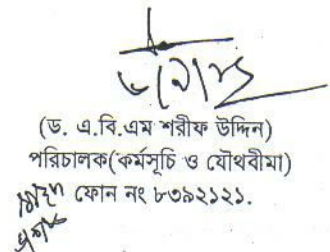 (ড. এ.বি.এম শরীফ উদ্দিন)
পরিচালক(কর্মসূচি ও যৌথবীমা)
ফোন নং ৮৩৯২১২১.